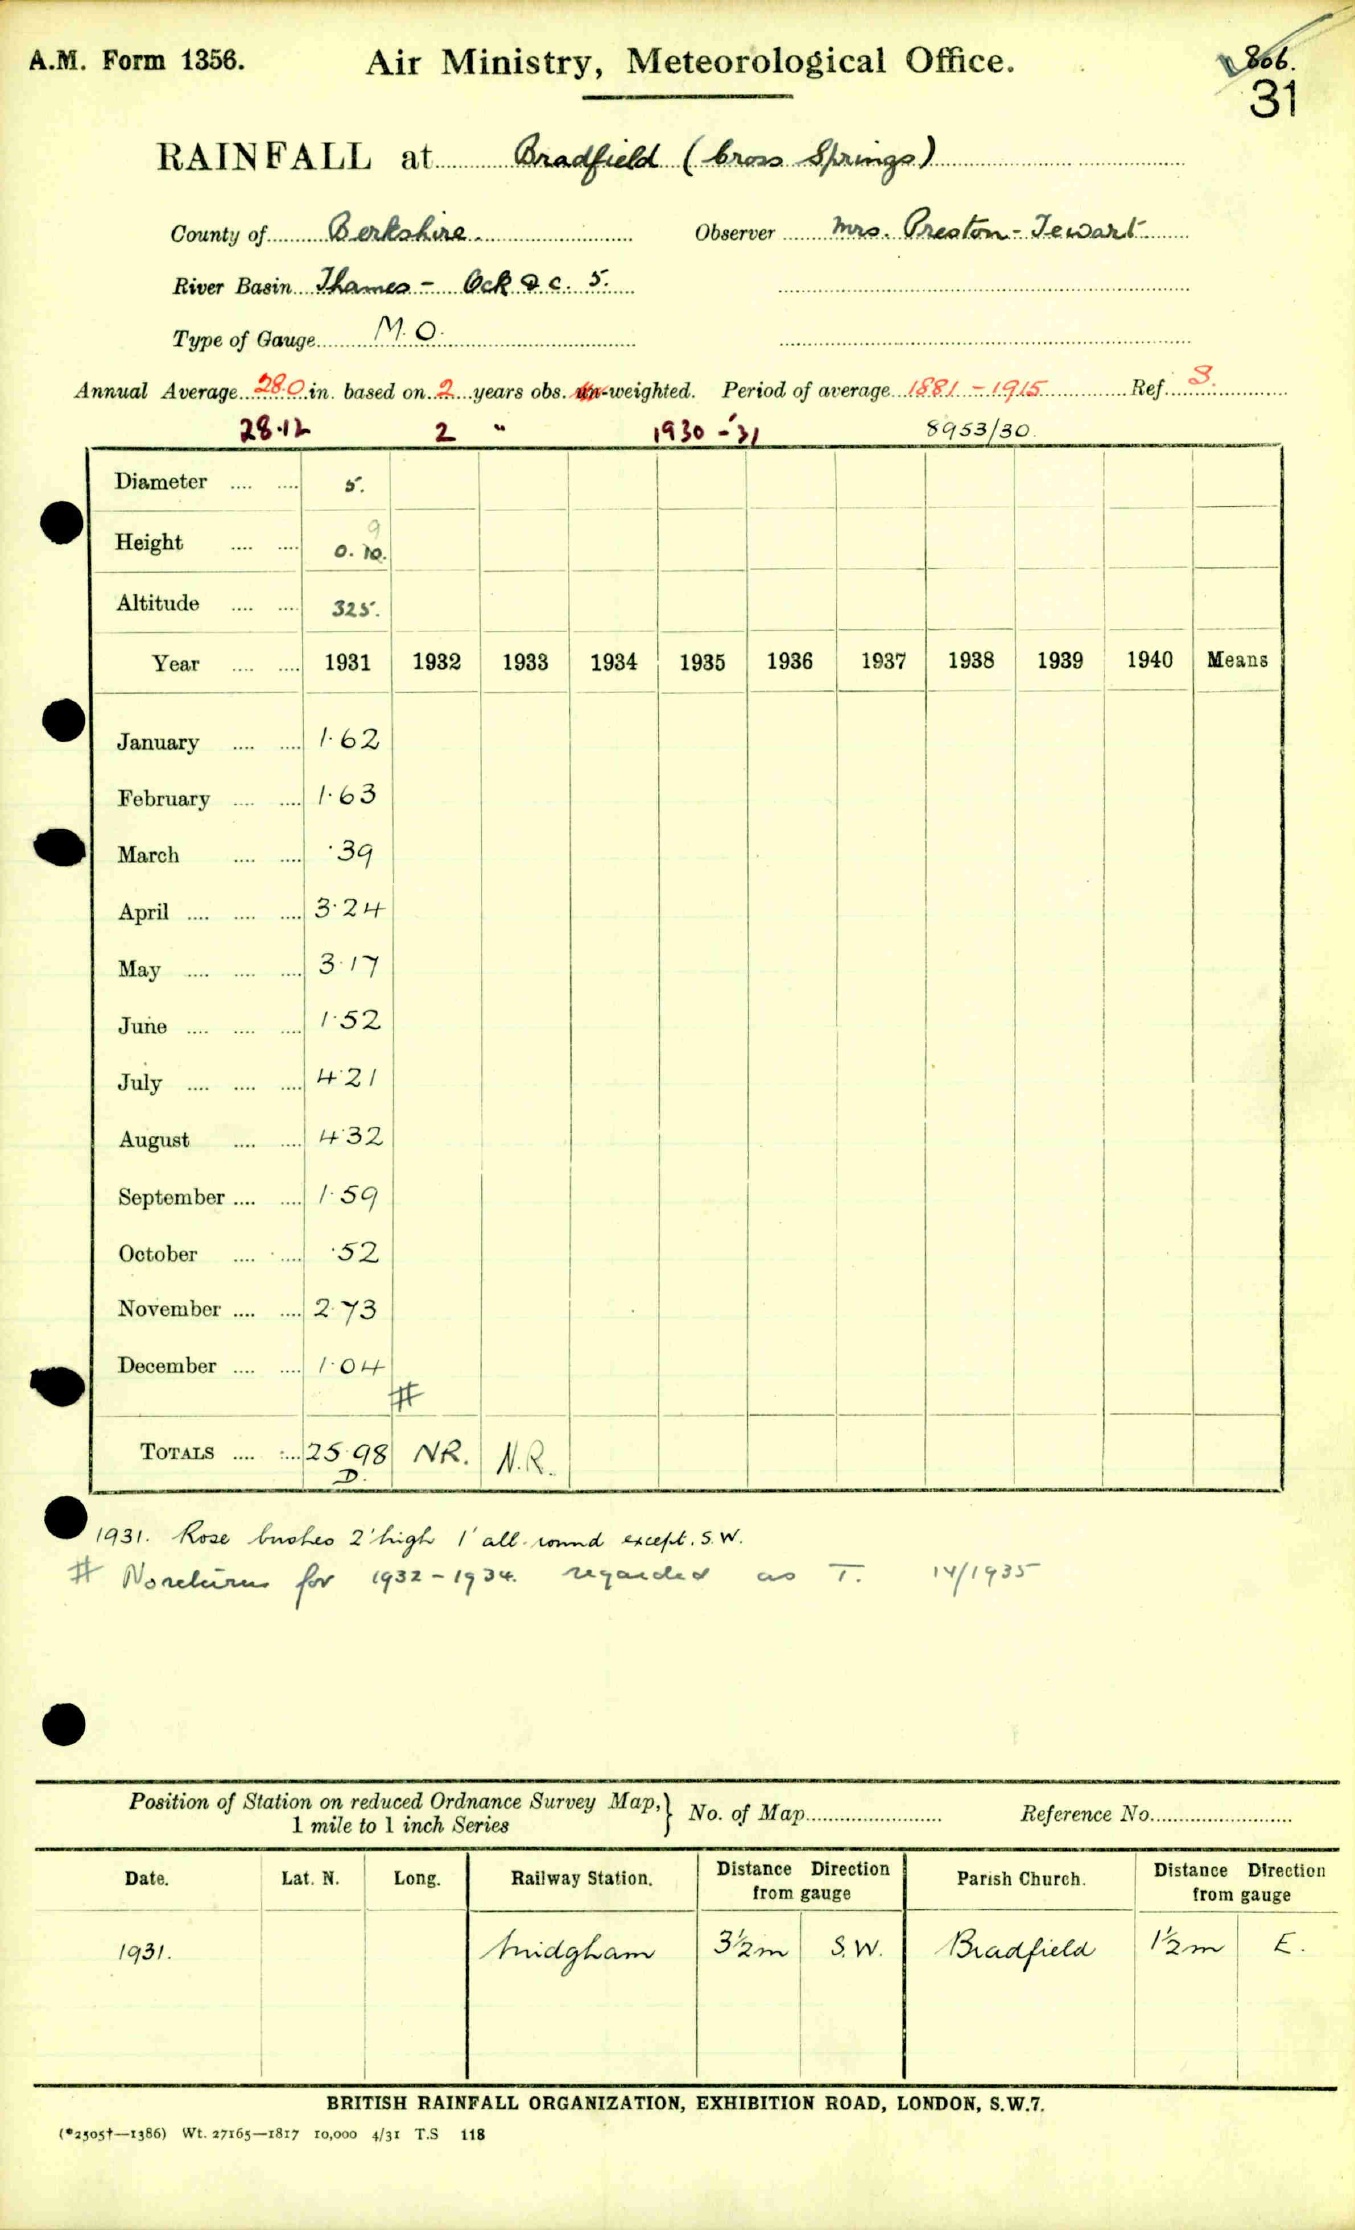 A.M. Form 1356. Air Ministry, Meteorological Office. 806.
31
RAINFALL at Bradfield (Cross Springs)
County of Berkshire. Observer Mrs. Preston-Tewart
River Basin Thames - Ock &c. 5.
Type of Gauge M.O.
Annual Average 28.0 in. based on 2 years obs. un-weighted. Period of average 1881-1915 Ref. S.
28.12 2 " 1930-'31 8953/30.
Diameter .... .... 5.
Height .... .... 9 0.10.
Altitude .... .... 325.
Year .... .... 1931 1932 1933 1934 1935 1936 1937 1938 1939 1940 Means
January .... .... 1.62
February .... .... 1.63
March .... .... .39
April .... .... .... 3.24
May .... .... .... 3.17
June .... .... .... 1.52
July .... .... .... 4.21
August .... .... 4.32
September .... .... 1.59
October .... .... .52
November .... .... 2.73
December .... .... 1.04
#
TOTALS .... .... 25.98 NR. N.R.
D.
1931. Rose bushes 2' high 1' all round except. S.W.
# No returns for 1932-1934. regarded as T. 14/1935
Position of Station on reduced Ordnance Survey Map, } No. of Map Reference No.
1 mile to 1 inch Series
Date. Lat. N. Long. Railway Station. Distance Direction from gauge Parish Church. Distance Direction from gauge
1931. Midgham 3½m S.W. Bradfield 1½m E.
BRITISH RAINFALL ORGANIZATION, EXHIBITION ROAD, LONDON, S.W.7.
(*2505†—1386) Wt. 27165—1817 10,000 4/31 T.S 118